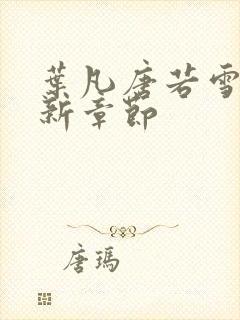 葉凡唐若雪
新章節
唐瑪